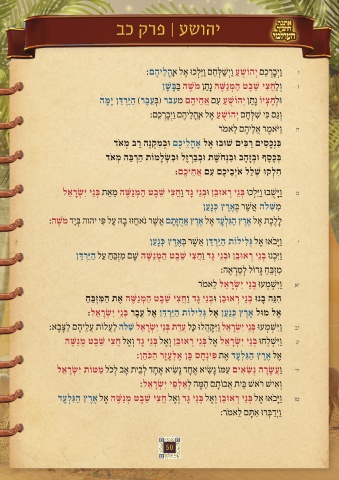 יהושע | פרק כב
ו וַיְבָרְכֵם יְהוֹשֻׁעַ וַיְשַׁלְּחֵם וַיֵּלְכוּ אֶל אָהֳלֵיהֶם:
ז וְלַחֲצִי שֵׁבֶט הַמְנַשֶּׁה נָתַן מֹשֶׁה בַּבָּשָׁן
וּלְחֶצְיוֹ נָתַן יְהוֹשֻׁעַ עִם אֲחֵיהֶם מעבר (בְּעֵבֶר) הַיַּרְדֵּן יָמָּה
וְגַם כִּי שִׁלְּחָם יְהוֹשֻׁעַ אֶל אָהֳלֵיהֶם וַיְבָרְכֵם:
ח וַיֹּאמֶר אֲלֵיהֶם לֵאמֹר
בִּנְכָסִים רַבִּים שׁוּבוּ אֶל אָהֳלֵיכֶם וּבְמִקְנֶה רַב מְאֹד
בְּכֶסֶף וּבְזָהָב וּבִנְחֹשֶׁת וּבְבַרְזֶל וּבִשְׂלָמוֹת הַרְבֵּה מְאֹד
חִלְקוּ שְׁלַל אֹיְבֵיכֶם עִם אֲחֵיכֶם:
ט וַיָּשֻׁבוּ וַיֵּלְכוּ בְּנֵי רְאוּבֵן וּבְנֵי גָד וַחֲצִי שֵׁבֶט הַמְנַשֶּׁה מֵאֵת בְּנֵי יִשְׂרָאֵל
מִשִּׁלֹה אֲשֶׁר בְּאֶרֶץ כְּנָעַן
לָלֶכֶת אֶל אֶרֶץ הַגִּלְעָד אֶל אֶרֶץ אֲחֻזָּתָם אֲשֶׁר נֹאחֲזוּ בָהּ עַל פִּי יְהוָה בְּיַד מֹשֶׁה:
י וַיָּבֹאוּ אֶל גְּלִילוֹת הַיַּרְדֵּן אֲשֶׁר בְּאֶרֶץ כְּנָעַן
וַיִּבְנוּ בְנֵי רְאוּבֵן וּבְנֵי גָד וַחֲצִי שֵׁבֶט הַמְנַשֶּׁה שָׁם מִזְבֵּחַ עַל הַיַּרְדֵּן
מִזְבֵּחַ גָּדוֹל לְמַרְאֶה:
יא וַיִּשְׁמְעוּ בְנֵי יִשְׂרָאֵל לֵאמֹר
הִנֵּה בָנוּ בְנֵי רְאוּבֵן וּבְנֵי גָד וַחֲצִי שֵׁבֶט הַמְנַשֶּׁה אֶת הַמִּזְבֵּחַ
אֶל מוּל אֶרֶץ כְּנַעַן אֶל גְּלִילוֹת הַיַּרְדֵּן אֶל עֵבֶר בְּנֵי יִשְׂרָאֵל:
יב וַיִּשְׁמְעוּ בְּנֵי יִשְׂרָאֵל וַיִּקָּהֲלוּ כָּל עֲדַת בְּנֵי יִשְׂרָאֵל שִׁלֹה לַעֲלוֹת עֲלֵיהֶם לַצָּבָא:
יג וַיִּשְׁלְחוּ בְנֵי יִשְׂרָאֵל אֶל בְּנֵי רְאוּבֵן וְאֶל בְּנֵי גָד וְאֶל חֲצִי שֵׁבֶט מְנַשֶּׁה
אֶל אֶרֶץ הַגִּלְעָד אֶת פִּינְחָס בֶּן אֶלְעָזָר הַכֹּהֵן:
יד וַעֲשָׂרָה נְשִׂאִים עִמּוֹ נָשִׂיא אֶחָד נָשִׂיא אֶחָד לְבֵית אָב לְכֹל מַטּוֹת יִשְׂרָאֵל
וְאִישׁ רֹאשׁ בֵּית אֲבוֹתָם הֵמָּה לְאַלְפֵי יִשְׂרָאֵל:
טו וַיָּבֹאוּ אֶל בְּנֵי רְאוּבֵן וְאֶל בְּנֵי גָד וְאֶל חֲצִי שֵׁבֶט מְנַשֶּׁה אֶל אֶרֶץ הַגִּלְעָד
וַיְדַבְּרוּ אִתָּם לֵאמֹר:
50